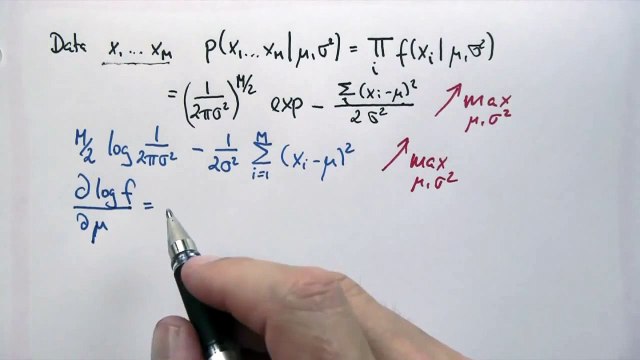 Data x₁ ... x_M p(x₁ ... x_M | μ, σ²) = ∏_i f(x_i | μ, σ²)
= (1/2πσ²)^{M/2} exp − Σ_i (x_i − μ)² / 2σ² ↗ max μ, σ²
M/2 log 1/2πσ² − 1/2σ² Σ_{i=1}^{M} (x_i − μ)² ↗ max μ, σ²
∂ log f / ∂μ =